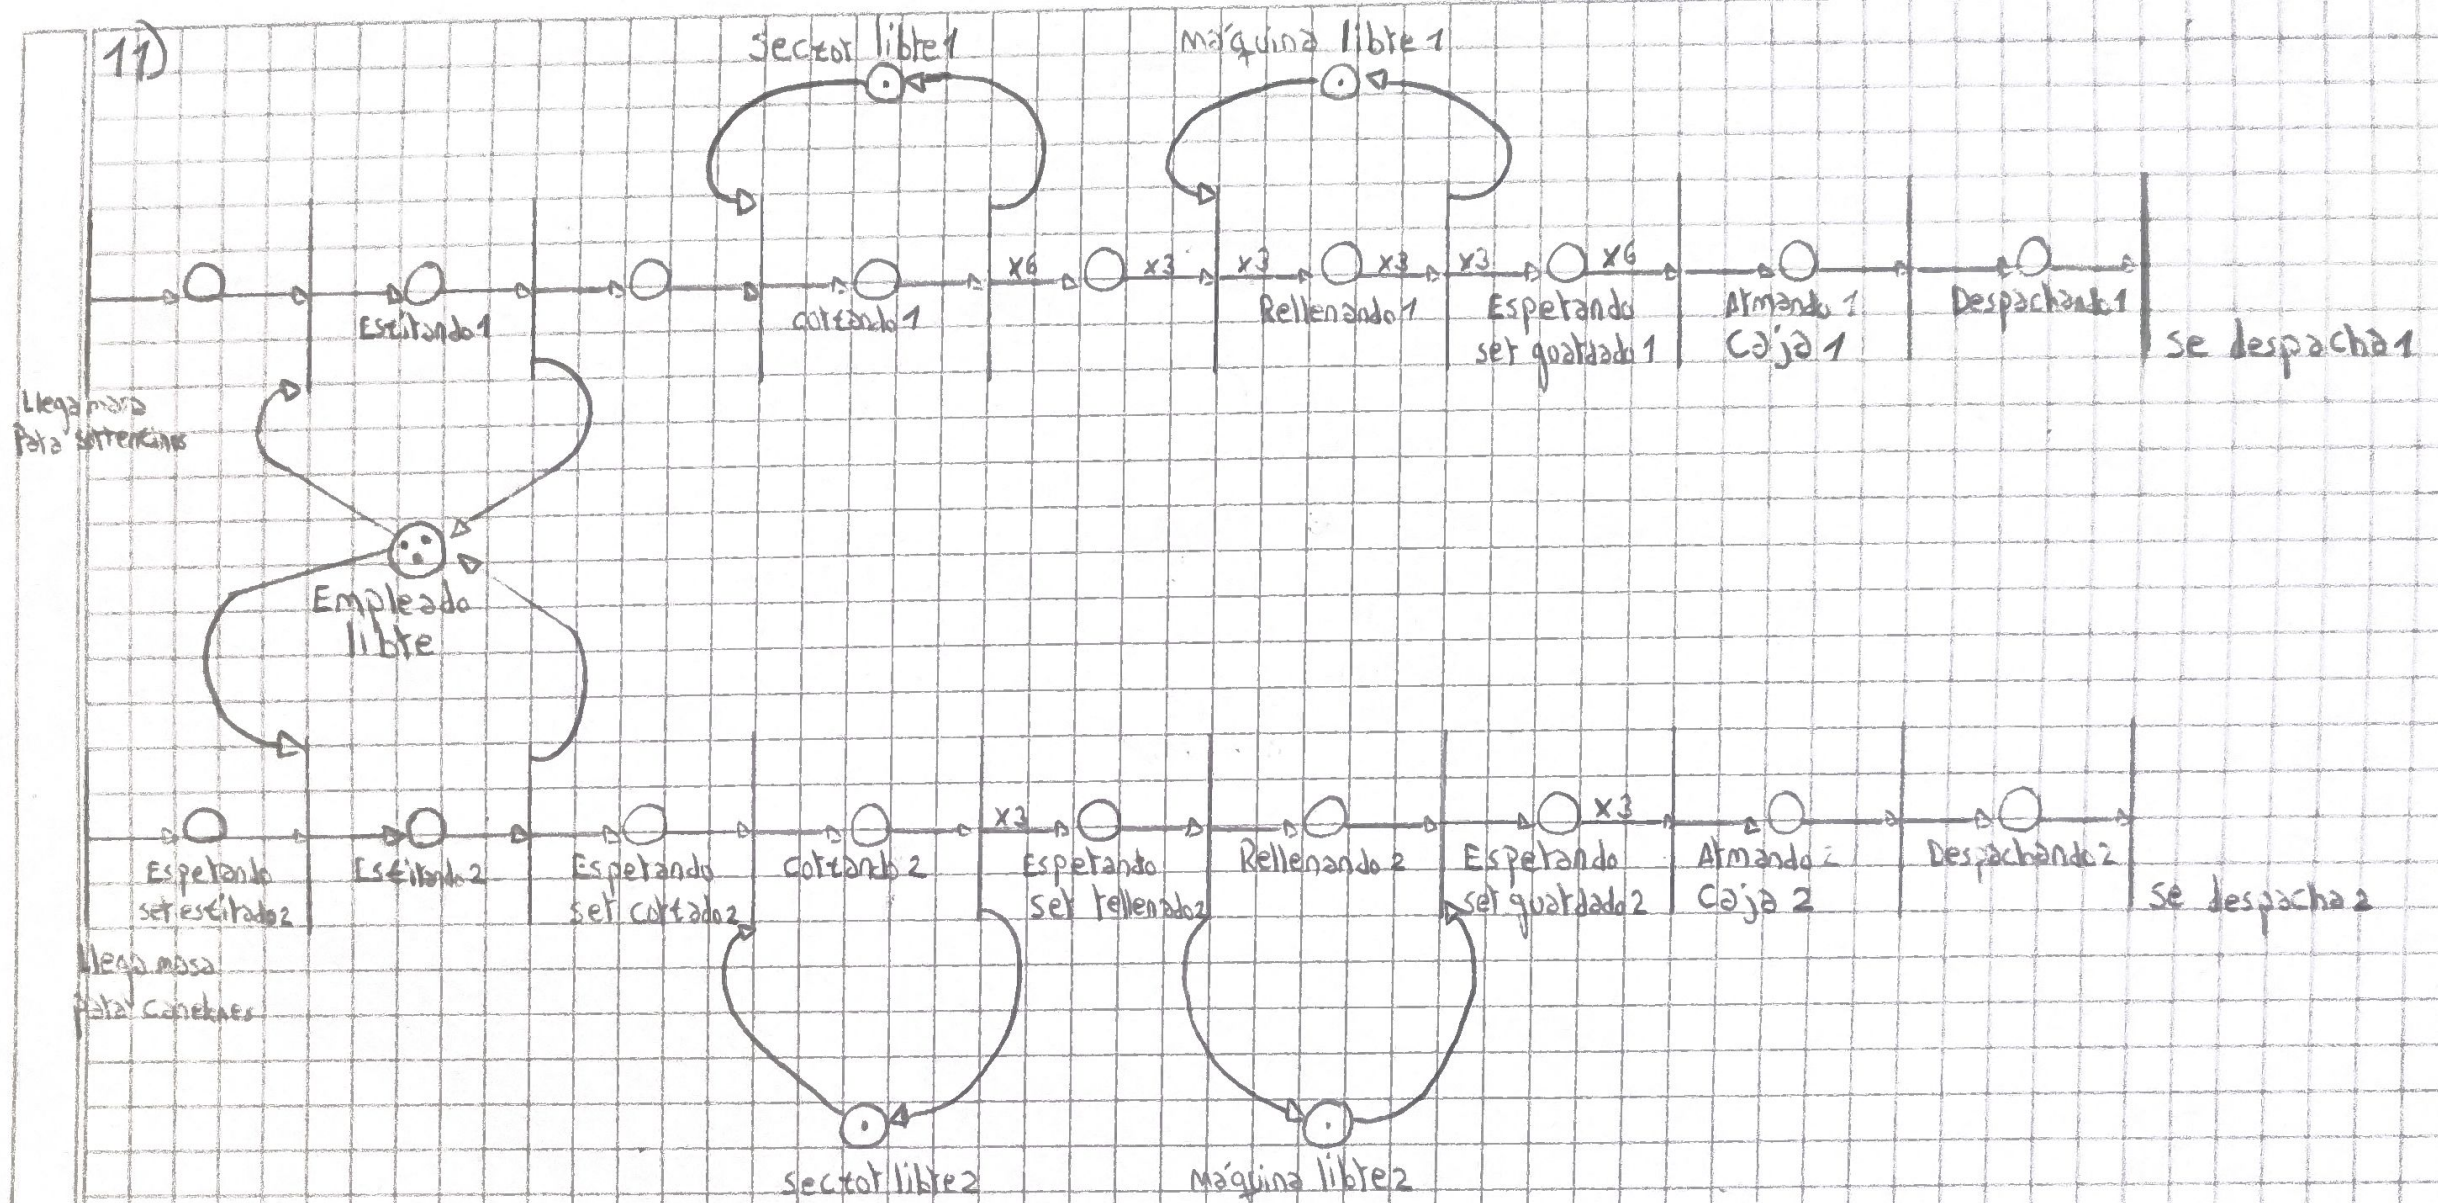 11)
sector libre1
máquina libre1
x6
x3
x3
x3
x3
x6
Estirando1
cortando1
Rellenando1
Esperando
ser guardado1
Armando 1
Caja1
Despachando1
se despacha1
Llega masa
Para sorrentinos
Empleado
libre
x3
x3
Esperando
ser estirado2
Estirando2
Esperando
ser cortado2
cortando2
Esperando
ser rellenado2
Rellenando2
Esperando
ser guardado2
Armando 2
Caja2
Despachando2
se despacha2
Llega masa
Para
sector libre2
máquina libre2